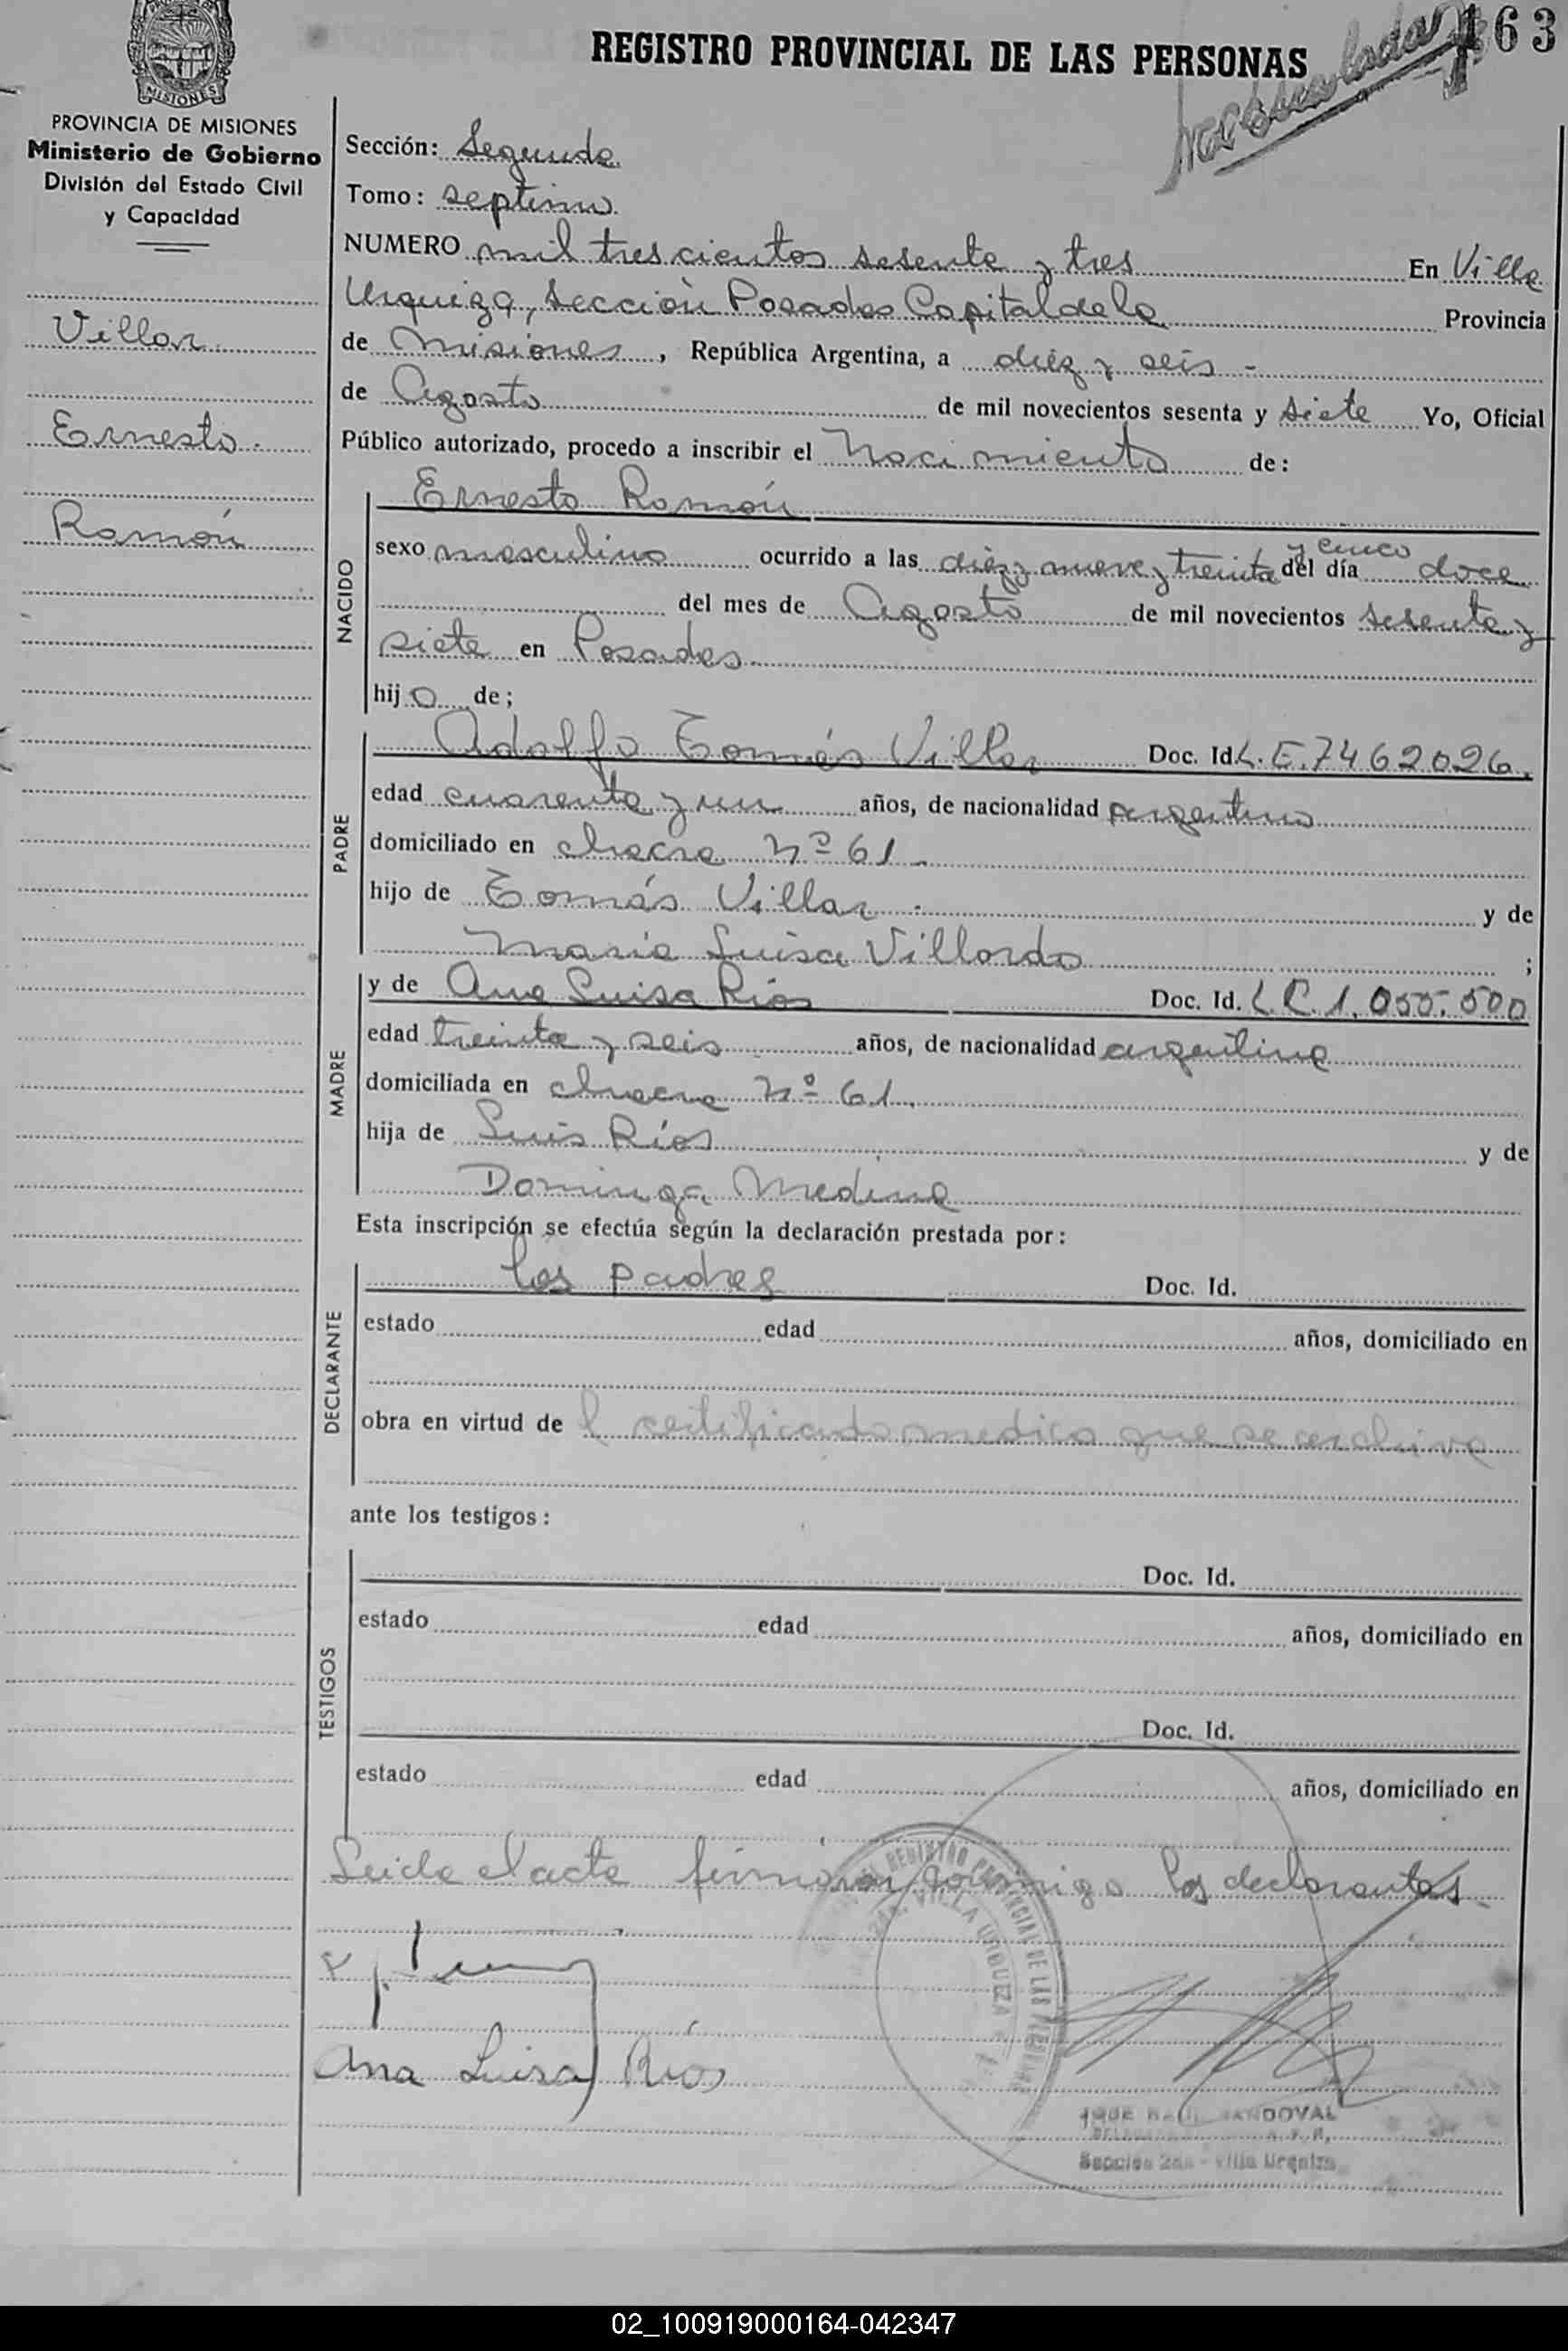 REGISTRO PROVINCIAL DE LAS PERSONAS
163
MISIONES
PROVINCIA DE MISIONES
Ministerio de Gobierno
División del Estado Civil
y Capacidad
Villar
Ernesto.
Ramón
Sección: Segunda
Tomo: septimo
NUMERO mil trescientos sesenta y tres En Villa
Urquiza, Sección Posadas Capital de la Provincia
de Misiones, República Argentina, a diez y seis -
de Agosto de mil novecientos sesenta y siete Yo, Oficial
Público autorizado, procedo a inscribir el Nacimiento de:
NACIDO
Ernesto Ramón
y cinco
sexo masculino ocurrido a las diez y nueve y treinta del día doce
del mes de Agosto de mil novecientos sesenta y
siete en Posadas
hijo de;
PADRE
Adolfo Tomás Villar Doc. Id. L.E. 7462026.
edad cuarenta y un años, de nacionalidad argentino
domiciliado en chacra Nº 61.
hijo de Tomás Villar. y de
María Luisa Villordo ;
MADRE
y de Ana Luisa Ríos Doc. Id. L.C. 1.055.500
edad treinta y seis años, de nacionalidad argentina
domiciliada en chacra Nº 61.
hija de Luis Ríos y de
Dominga Medina
Esta inscripción se efectúa según la declaración prestada por:
DECLARANTE
los padres Doc. Id.
estado edad años, domiciliado en
obra en virtud de l certificado medico que se archiva
ante los testigos:
TESTIGOS
Doc. Id.
estado edad años, domiciliado en
Doc. Id.
estado edad años, domiciliado en
Leida el acta firman conmigo los declarantes
DEL REGISTRO PROVINCIAL DE LAS PERSONAS
VILLA URQUIZA
Ana Luisa Ríos
SANDOVAL
Sección 2da - Villa Urquiza
02_100919000164-042347